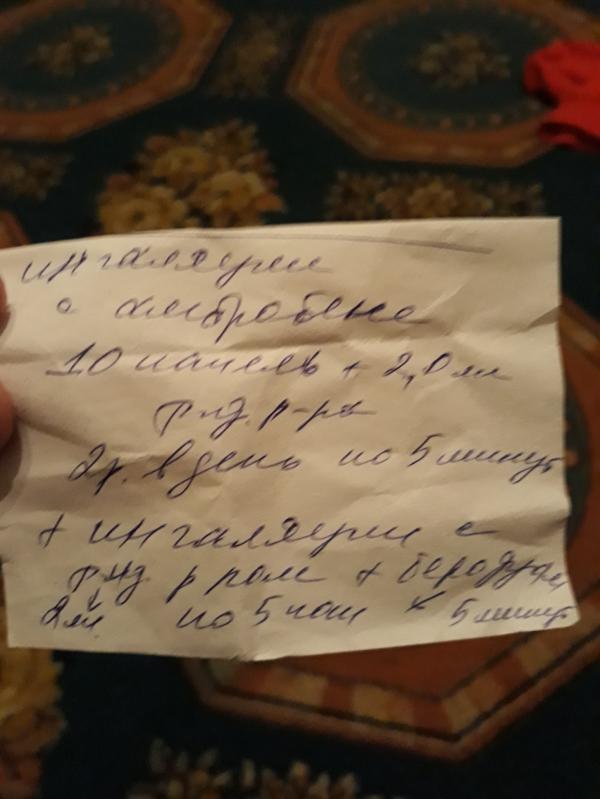 ингаляции
с амбробене
10 капель + 2,0 мл
физ. р-ра
2р. в день по 5 минут
+ ингаляции с
физ. р ром + беродуал
2мл по 5 кап х 5 минут